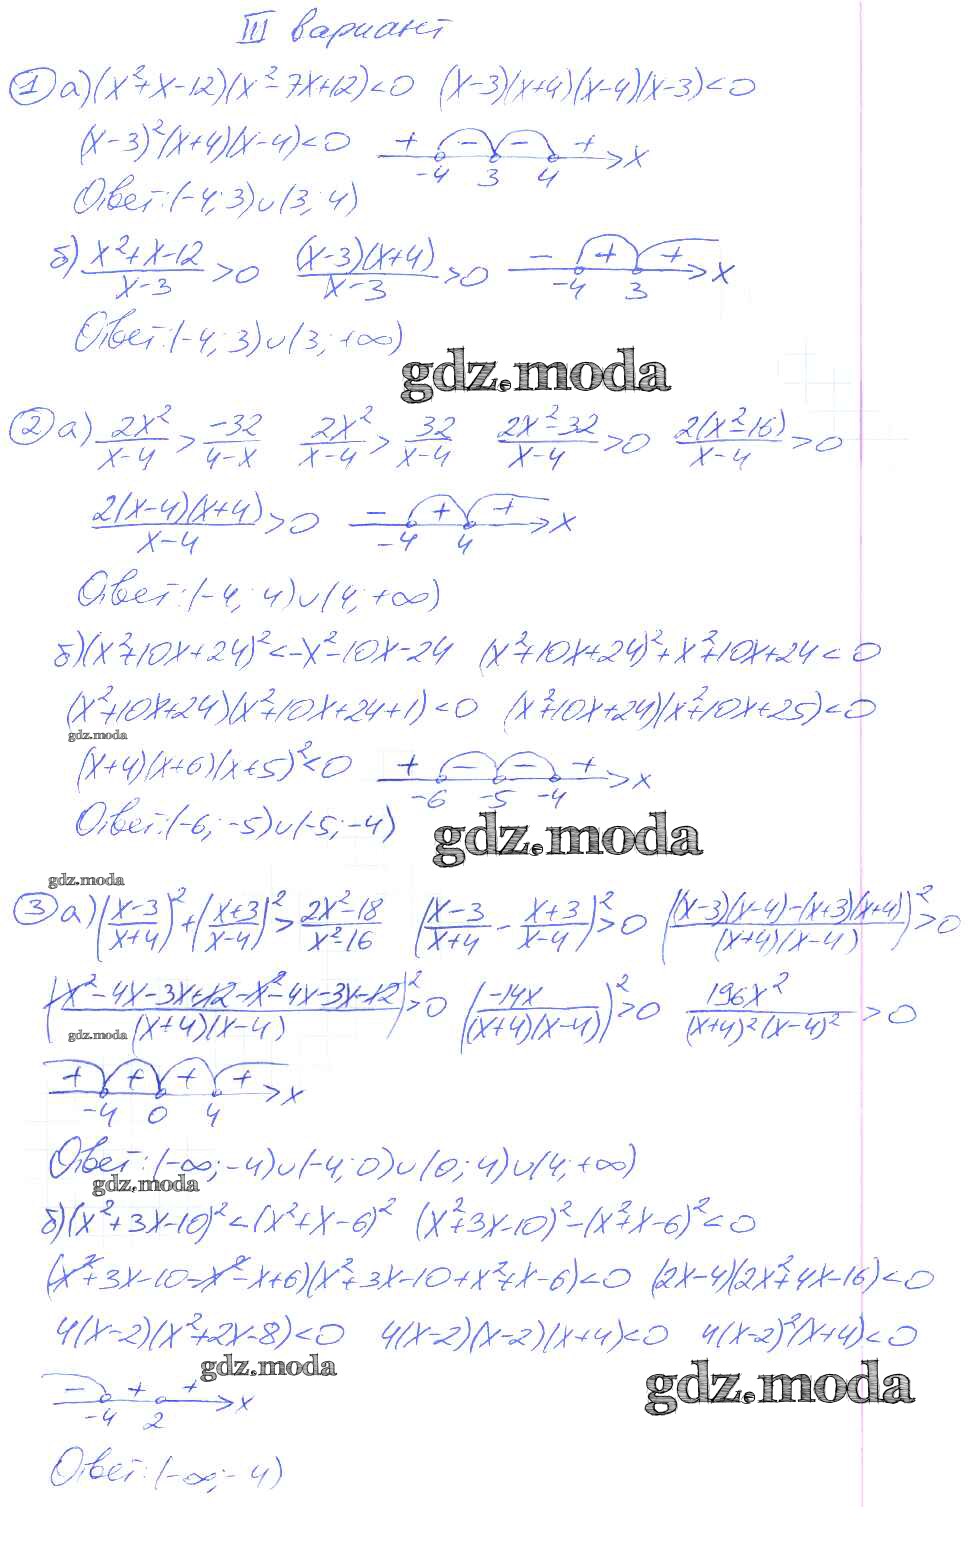 III вариант
① а) (x²+x-12)(x²-7x+12)<0 (x-3)(x+4)(x-4)(x-3)<0
(x-3)²(x+4)(x-4)<0 + - - + -4 3 4 x
Ответ: (-4; 3)∪(3; 4)
б) (x²+x-12)/(x-3)>0 ((x-3)(x+4))/(x-3)>0 - + + -4 3 x
Ответ: (-4; 3)∪(3; +∞)
gdz.moda
② а) 2x²/(x-4)>-32/(4-x) 2x²/(x-4)>32/(x-4) (2x²-32)/(x-4)>0 2(x²-16)/(x-4)>0
2(x-4)(x+4)/(x-4)>0 - + + -4 4 x
Ответ: (-4; 4)∪(4; +∞)
б) (x²+10x+24)²<-x²-10x-24 (x²+10x+24)²+x²+10x+24<0
(x²+10x+24)(x²+10x+24+1)<0 (x²+10x+24)(x²+10x+25)<0
gdz.moda
(x+4)(x+6)(x+5)²<0 + - - + -6 -5 -4 x
Ответ: (-6; -5)∪(-5; -4)
gdz.moda
gdz.moda
③ а) ((x-3)/(x+4))²+((x+3)/(x-4))²>(2x²-18)/(x²-16) ((x-3)/(x+4)-(x+3)/(x-4))²>0 (((x-3)(x-4)-(x+3)(x+4))/((x+4)(x-4)))²>0
((x²-4x-3x+12-x²-4x-3x-12)/((x+4)(x-4)))²>0 (-14x/((x+4)(x-4)))²>0 196x²/((x+4)²(x-4)²)>0
gdz.moda
+ + + + -4 0 4 x
Ответ: (-∞; -4)∪(-4; 0)∪(0; 4)∪(4; +∞)
gdz.moda
б) (x²+3x-10)²<(x²+x-6)² (x²+3x-10)²-(x²+x-6)²<0
(x²+3x-10-x²-x+6)(x²+3x-10+x²+x-6)<0 (2x-4)(2x²+4x-16)<0
4(x-2)(x²+2x-8)<0 4(x-2)(x-2)(x+4)<0 4(x-2)²(x+4)<0
gdz.moda
gdz.moda
- + + -4 2 x
Ответ: (-∞; -4)